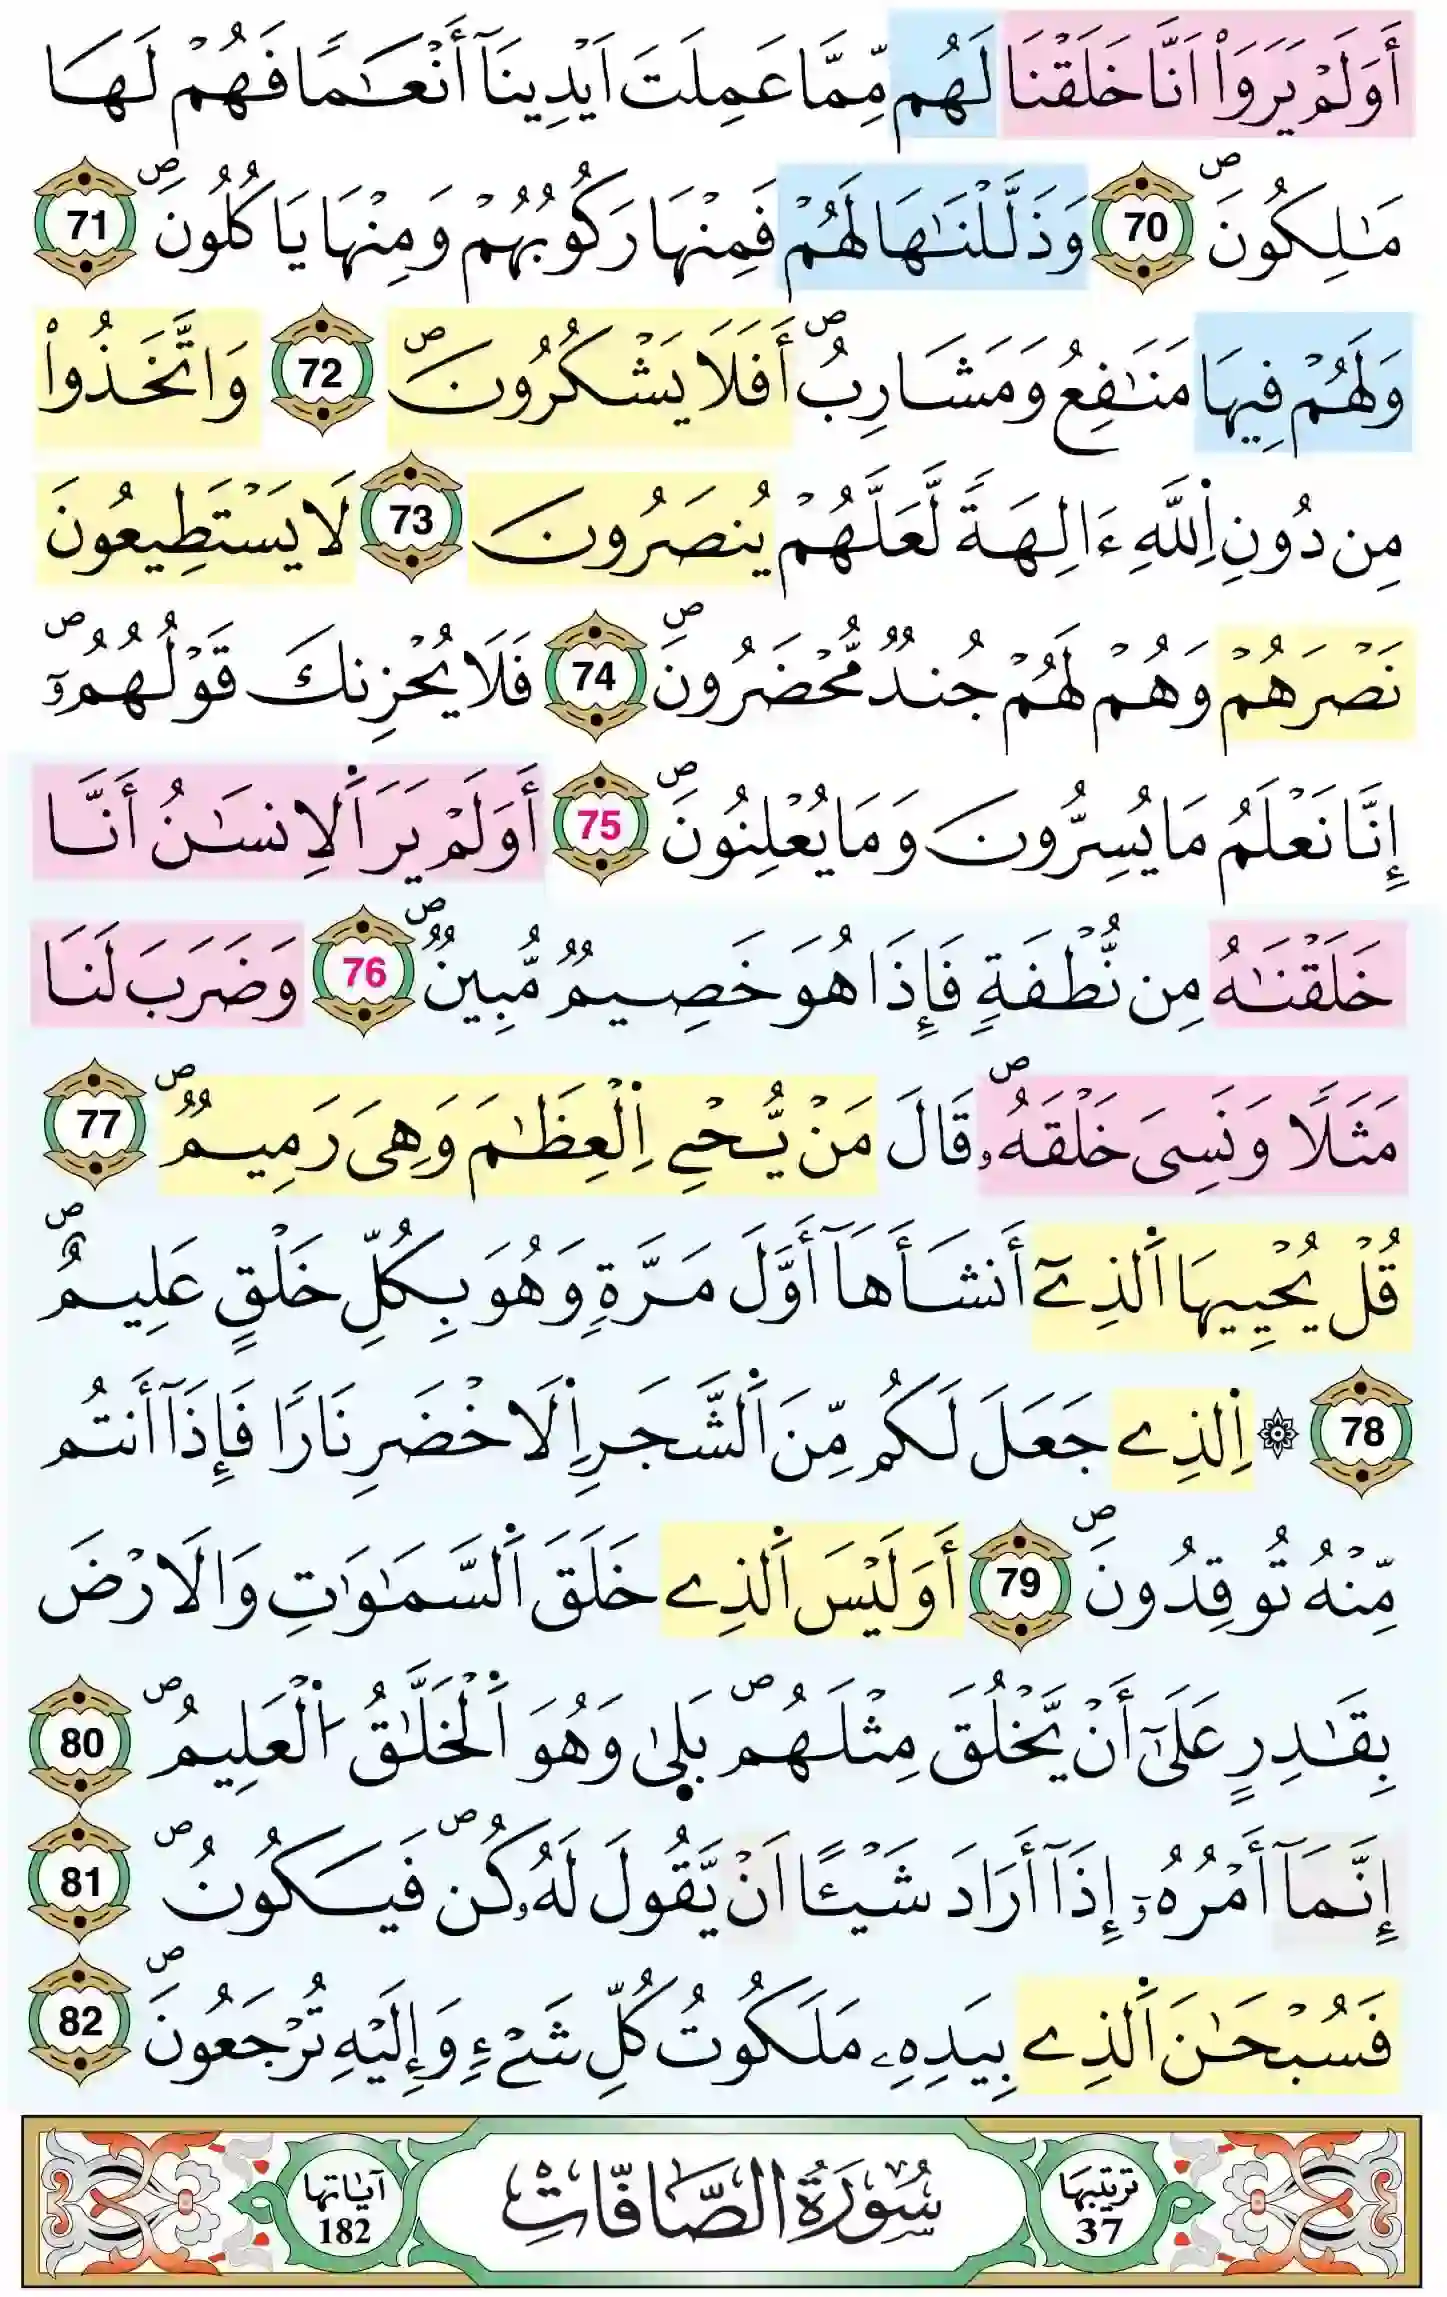 أَوَلَمْ يَرَوَاْ اَنَّا خَلَقْنَا لَهُم مِّمَّا عَمِلَتَ اَيْدِينَآ أَنْعَٰمٗا فَهُمْ لَهَا
مَٰلِكُونَۖ 70 وَذَلَّلْنَٰهَا لَهُمْ فَمِنْهَا رَكُوبُهُمْ وَمِنْهَا يَاكُلُونَۖ 71
وَلَهُمْ فِيهَا مَنَٰفِعُ وَمَشَارِبُۖ أَفَلَا يَشْكُرُونَۖ 72 وَاتَّخَذُواْ
مِن دُونِ اِ۬للَّهِ ءَالِهَةٗ لَّعَلَّهُمْ يُنصَرُونَ 73 لَا يَسْتَطِيعُونَ
نَصْرَهُمْ وَهُمْ لَهُمْ جُندٞ مُّحْضَرُونَۖ 74 فَلَا يُحْزِنكَ قَوْلُهُمُۥٓۖ
إِنَّا نَعْلَمُ مَا يُسِرُّونَ وَمَا يُعْلِنُونَۖ 75 أَوَلَمْ يَرَ اَ۬لِانسَٰنُ أَنَّا
خَلَقْنَٰهُ مِن نُّطْفَةٖ فَإِذَا هُوَ خَصِيمٞ مُّبِينٞۖ 76 وَضَرَبَ لَنَا
مَثَلٗا وَنَسِيَ خَلْقَهُۥۖ قَالَ مَنْ يُّحْيِ اِ۬لْعِظَٰمَ وَهِيَ رَمِيمٞۖ 77
قُلْ يُحْيِيهَا اَ۬لذِےٓ أَنشَأَهَآ أَوَّلَ مَرَّةٖ وَهُوَ بِكُلِّ خَلْقٍ عَلِيمٌۖ
78 ۞ اِ۬لذِے جَعَلَ لَكُم مِّنَ اَ۬لشَّجَرِ اِ۬لَاخْضَرِ نَارٗا فَإِذَآ أَنتُم
مِّنْهُ تُوقِدُونَۖ 79 أَوَلَيْسَ اَ۬لذِے خَلَقَ اَ۬لسَّمَٰوَٰتِ وَالَارْضَ
بِقَٰدِرٍ عَلَىٰٓ أَنْ يَّخْلُقَ مِثْلَهُمۖ بَلَىٰ وَهُوَ اَ۬لْخَلَّٰقُ اُ۬لْعَلِيمُۖ 80
إِنَّمَآ أَمْرُهُۥٓ إِذَآ أَرَادَ شَيْـًٔا اَنْ يَّقُولَ لَهُۥ كُنۖ فَيَكُونُۖ 81
فَسُبْحَٰنَ اَ۬لذِے بِيَدِهِۦ مَلَكُوتُ كُلِّ شَےْءٖ وَإِلَيْهِ تُرْجَعُونَۖ 82
ترتيبها 37 سُورَةُ الصَّافَّاتِ آياتها 182